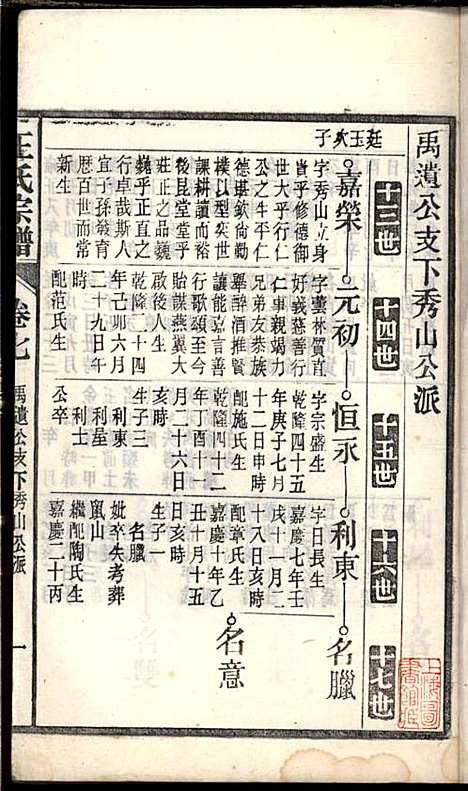 禹遺公支下秀山公派
十三世
十四世
十五世
十六世
十七世
廷玉次子
嘉榮
元初
恒永
利東
名臘
字秀山立身
貴乎修德御
世大乎行仁
公之生平仁
德堪欽尚勤
樸以型奕世
課耕讀而裕
後昆堂堂乎
莊正之品巍
巍乎正直之
行卓哉斯人
宜子孫發育
歷百世而常
新生
字蕓林質直
好義慈善行
仁事親竭力
兄弟友恭族
舉辭酒推賢
讓能嘉言善
行歌頌至今
貽謀燕翼大
啟後人生
乾隆二十四
年己卯六月
二十九日午
時
配范氏生
公卒
字宗盛生
乾隆四十五
年庚子七月
十二日申時
配施氏生
乾隆四十二
年丁酉十一
月二十六日
亥時
生子三
利東
利星
利士
字日長生
嘉慶七年壬
戌十一月二
十八日亥時
配章氏生
嘉慶十年乙
丑十月十五
日亥時
生子一
名臘
妣卒失考葬
鼠山
繼配陶氏生
嘉慶二十丙
名意
王氏宗譜
卷七
禹遺公支下秀山公派
一
上海圖書館藏